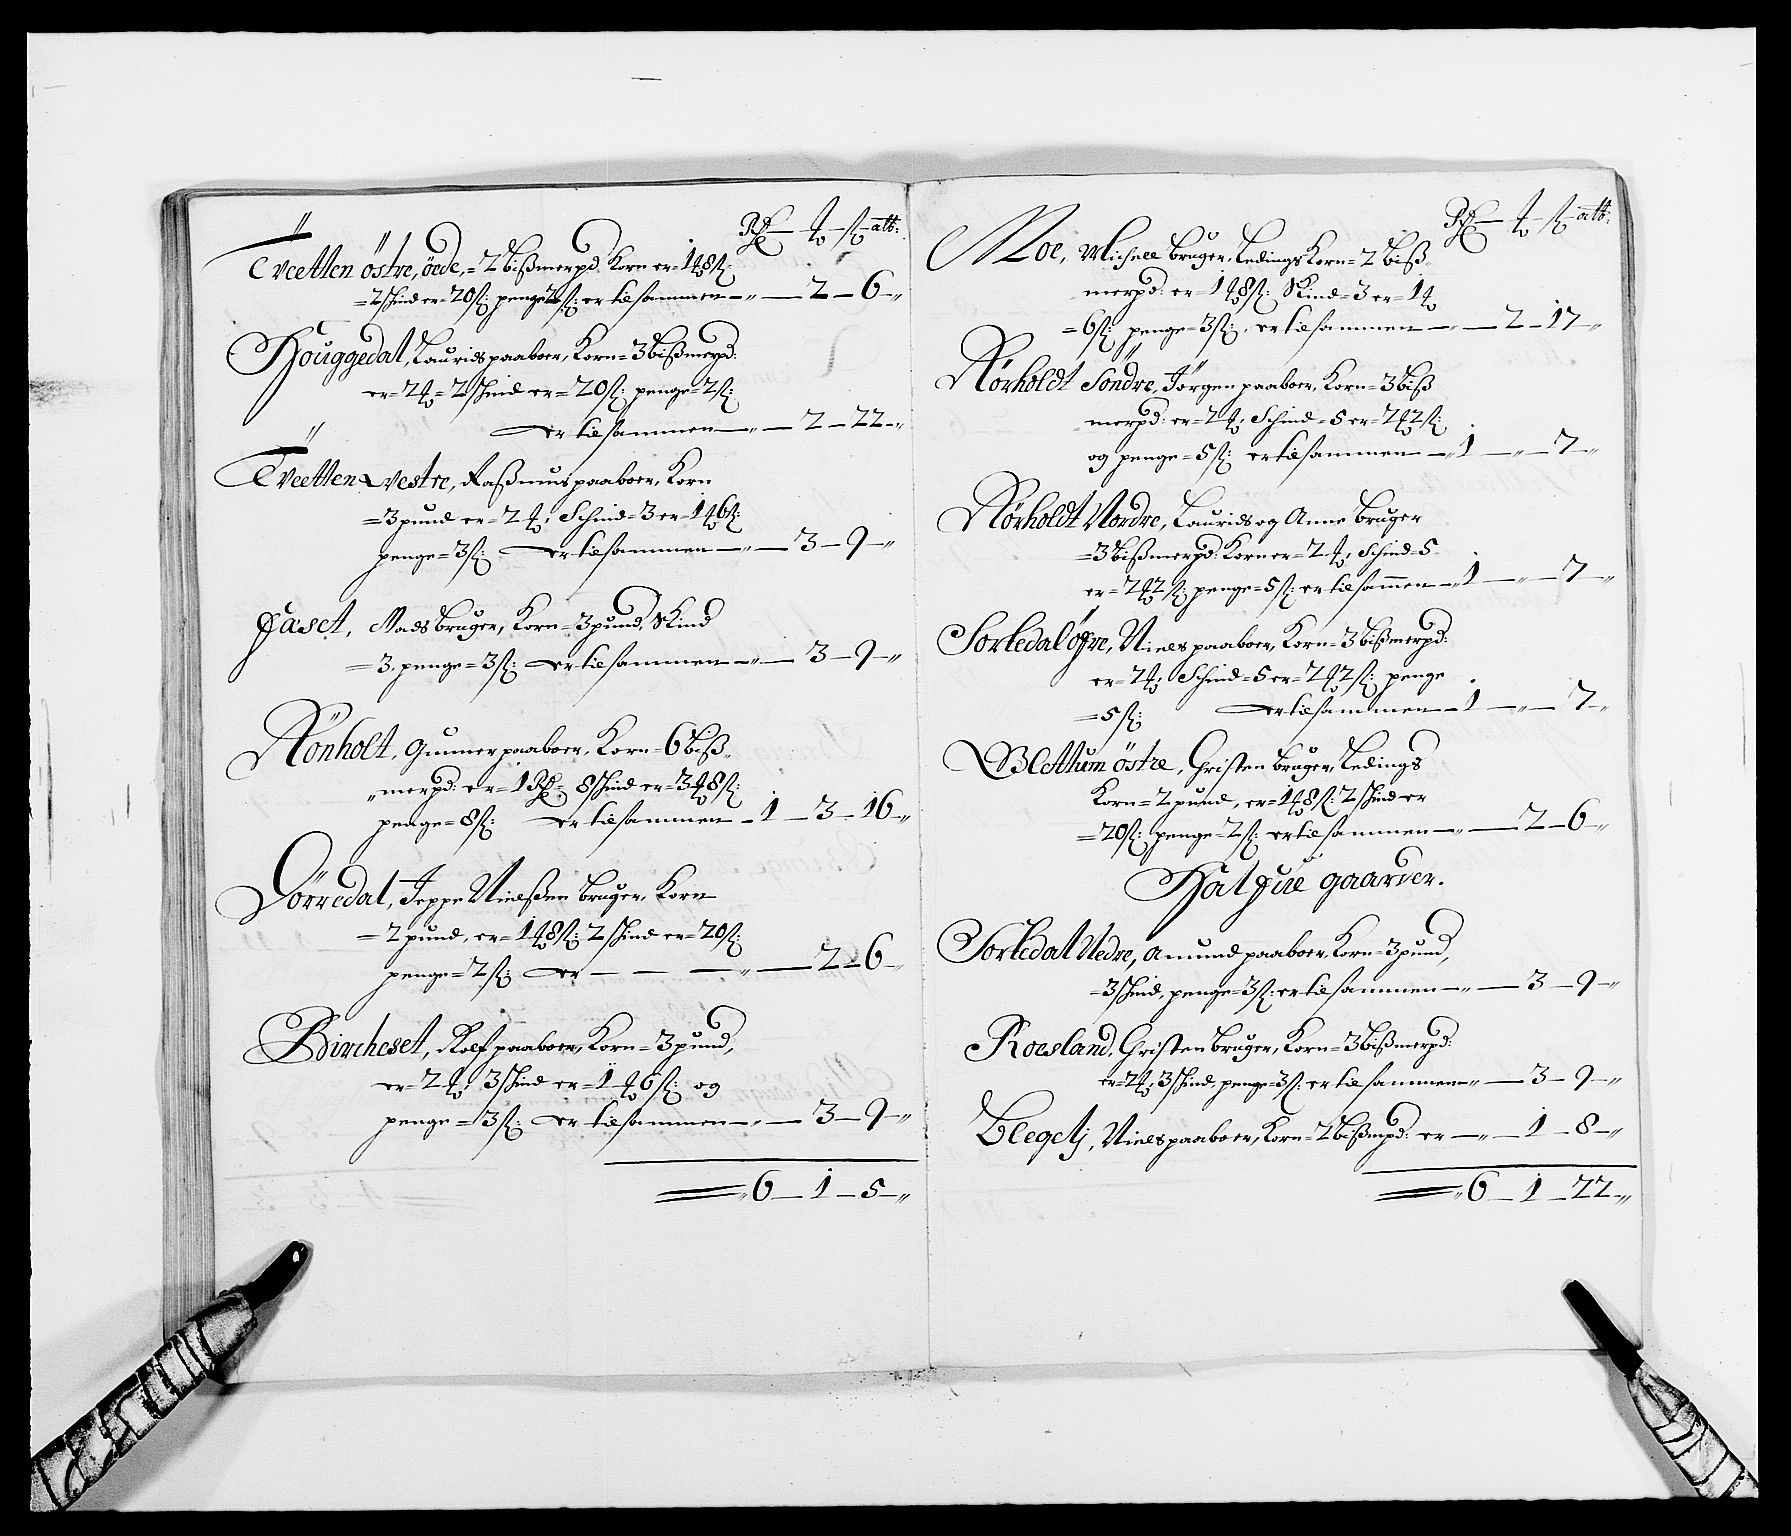 Rdr — ort — ß — alb:
Tveetten östre, öede, = 2 bißmerpd. Korn er = 1 ort 8 ß:
= 2 skind er = 20 ß: penge 2 ß: er tilsammen — „ — 2 — 6 — „
Houggedal, Laurids paaboer, Korn = 3 bißmerpd:
er = 2 ort = 2 skind er = 20 ß: penge = 2 ß:
er tilsammen — „ — 2 — 22 — „
Tveetten vestre, Raßmus paaboer, Korn
= 3 pund er = 2 ort, Schind = 3 er = 1 ort 6 ß:
penge = 3 ß: er tilsammen — „ — 3 — 9 — „
Faset, Mads bruger, Korn = 3 pund, Skind
= 3, penge = 3 ß: er tilsammen — „ — 3 — 9 — „
Rönholt, Gunner paaboer, Korn = 6 biß„
„merpd: er = 1 Rdr = 8 skind er = 3 ort 8 ß:
penge = 8 ß: er tilsammen — 1 — 3 — 16 — „
Dörredal, Jeppe Nielßen bruger, Korn
= 2 pund, er = 1 ort 8 ß: 2 skind er = 20 ß:
penge = 2 ß: er — — — „ — 2 — 6 — „
Bircheset, Rolf paaboer, Korn = 3 pund,
er = 2 ort, 3 skind er = 1 ort 6 ß: og
penge = 3 ß: er tilsammen — „ — 3 — 9 — „
6 — 1 — 5 — „
Rdr — ort — ß — alb:
Moe, Michell bruger, Ledings Korn = 2 biß„
merpd: er = 1 ort 8 ß: Skind = 3 er = 1 ort
= 6 ß: penge = 3 ß: er tilsammen — „ — 2 — 17 — „
Nörholdt Söndre, Jörgen paaboer, Korn = 3 biß
merpd: er = 2 ort, Schind = 5 er = 2 ort 2 ß:
og penge = 5 ß: er tilsammen — 1 — „ — 7 — „
Nörholdt Nordre, Laurids og Anne bruger
= 3 bißmerpd: Korn er = 2 ort, Schind = 5
er = 2 ort 2 ß: penge = 5 ß: er tilsammen — 1 — „ — 7 — „
Sortedal öfre, Niels paaboer, Korn = 3 bißmerpd:
er = 2 ort, Schind = 5 er = 2 ort 2 ß: penge
= 5 ß: er tilsammen — 1 — „ — 7 — „
Blettum östre, Christen bruger, Ledings
Korn = 2 pund, er = 1 ort 8 ß: 2 skind er
= 20 ß: penge = 2 ß: er tilsammen — „ — 2 — 6 — „
Halfue gaarder.
Sortedal Nedre, Amund paaboer, Korn = 3 pund,
= 3 skind, penge = 3 ß: er tilsammen — „ — 3 — 9 — „
Roesland, Christen bruger, Korn = 3 bißmerpd:
er = 2 ort, 3 skind, penge = 3 ß: er tilsammen — „ — 3 — 9 — „
Blegeli, Niels paaboer, Korn = 2 bißmpd: er — „ — 1 — 8 — „
6 — 1 — 22 — „